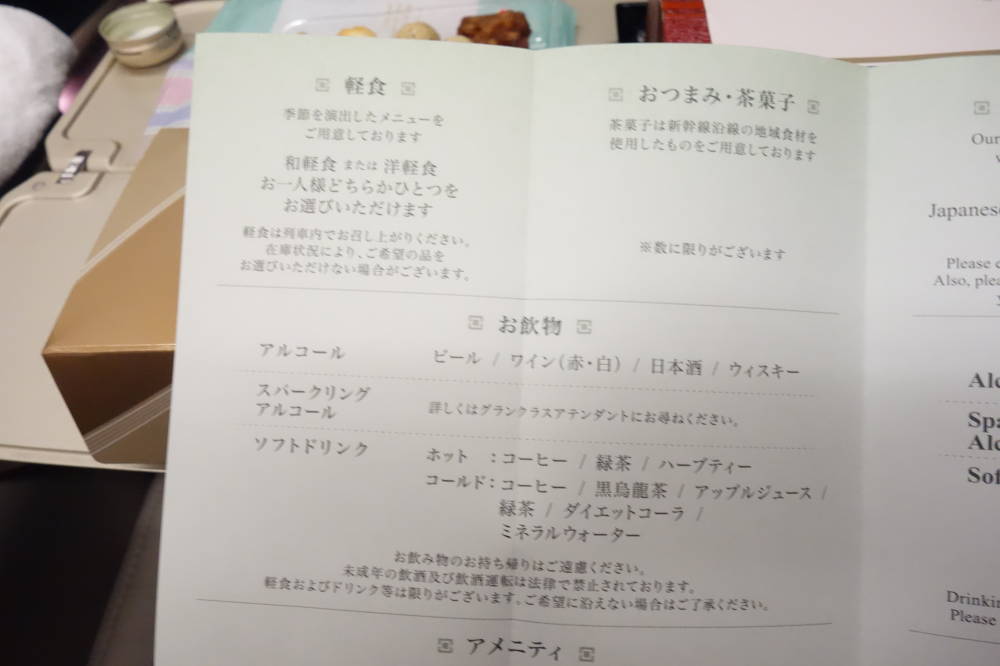 軽食
季節を演出したメニューを
ご用意しております
和軽食 または 洋軽食
お一人様どちらかひとつを
お選びいただけます
軽食は列車内でお召し上がりください。
在庫状況により、ご希望の品を
お選びいただけない場合がございます。
おつまみ・茶菓子
茶菓子は新幹線沿線の地域食材を
使用したものをご用意しております
※数に限りがございます
お飲物
アルコール
ビール / ワイン(赤・白) / 日本酒 / ウィスキー
スパークリング
アルコール
詳しくはグランクラスアテンダントにお尋ねください。
ソフトドリンク
ホット :コーヒー / 緑茶 / ハーブティー
コールド:コーヒー / 黒烏龍茶 / アップルジュース /
緑茶 / ダイエットコーラ /
ミネラルウォーター
お飲み物のお持ち帰りはご遠慮ください。
未成年の飲酒及び飲酒運転は法律で禁止されております。
軽食およびドリンク等は限りがございます。ご希望に沿えない場合はご了承ください。
アメニティ
Our
Japanese
Please
Also, plea
Alc
Spa
Alc
Sof
Drinkin
Please